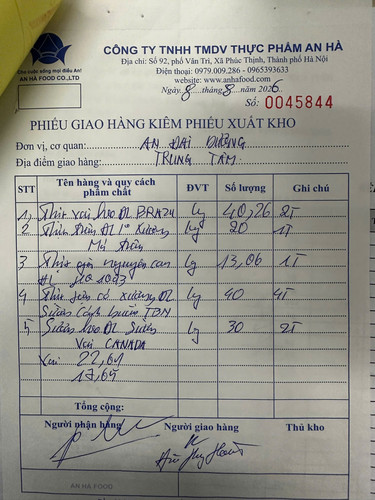 Cho cuộc sống mọi điều An!
AN HÀ FOOD CO.,LTD
CÔNG TY TNHH TMDV THỰC PHẨM AN HÀ
Địa chỉ: Số 92, phố Văn Trì, Xã Phúc Thịnh, Thành phố Hà Nội
Điện thoại: 0979.009.286 - 0965393633
website: www.anhafood.com
Ngày 8 tháng 8 năm 2026
Số: 0045844
PHIẾU GIAO HÀNG KIÊM PHIẾU XUẤT KHO
Đơn vị, cơ quan: AN ĐẠI DƯƠNG
Địa điểm giao hàng: TRUNG TÂM
STT Tên hàng và quy cách phẩm chất ĐVT Số lượng Ghi chú
1 Thịt vai heo ĐL BRAZIL kg 40,26 2T
2 Thịt ĐL Xương kg 20 1T
3 Thịt nguyên con kg 13,06 1T
4 Thịt có xương ĐL kg 40 4T
5 Sườn heo ĐL Sườn kg 30 2T
Vai CANADA
Vai 22,61
17,65
Tổng cộng:
Người nhận hàng Người giao hàng Thủ kho
AN HÀ FOOD